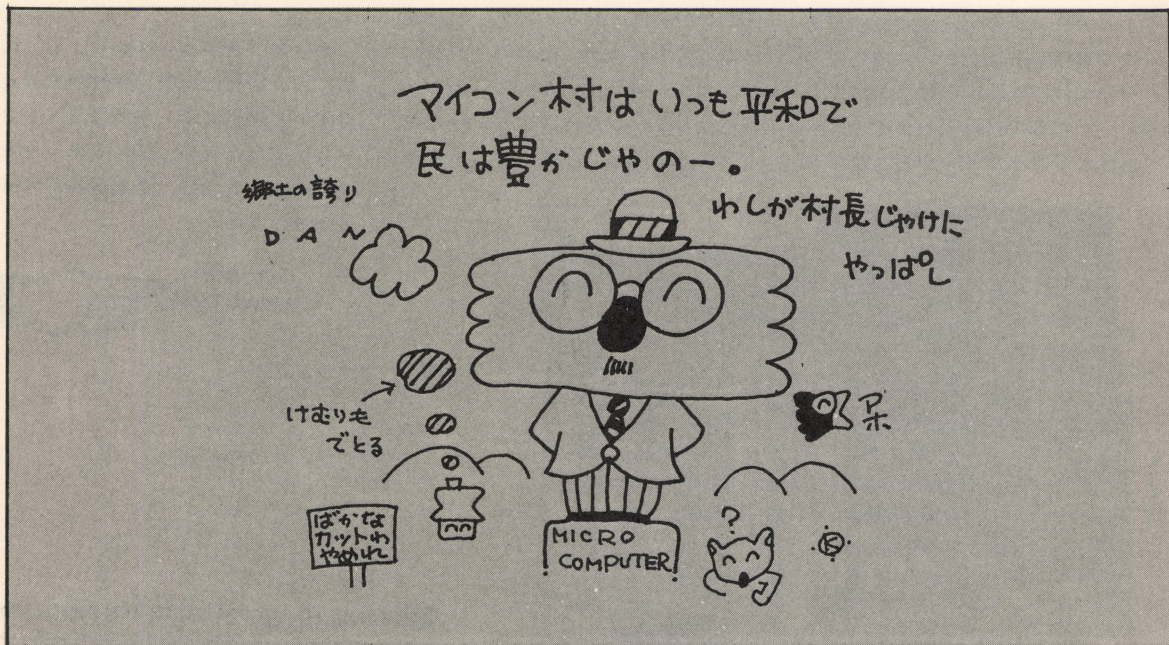 マイコン村はいつも平和で
民は豊かじゃのー。
郷土の誇り
DAN
わしが村長じゃけに
やっぱし
けむりも
でとる
アホ
ばかな
カットわ
やめれ
MICRO
COMPUTER
?
K